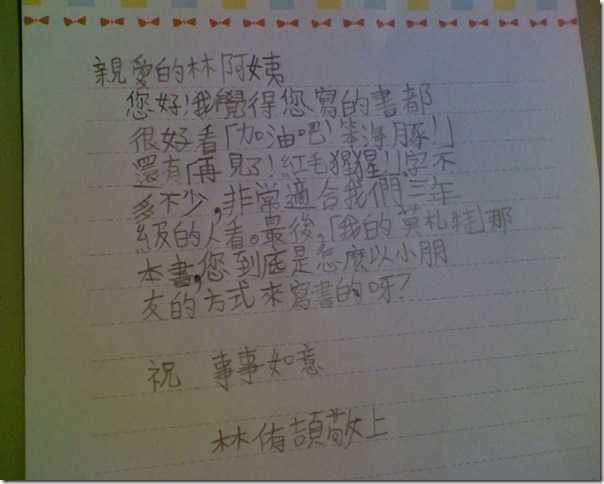 親愛的林阿姨
您好!我覺得您寫的書都
很好看「加油吧!笨海豚!」
還有「再見了!紅毛猩猩!」,字不
多不少,非常適合我們三年
級的人看。最後,「我的莫札特」那
本書,您到底是怎麼以小朋
友的方式來寫書的呀?
祝 事事如意
林侑頡敬上